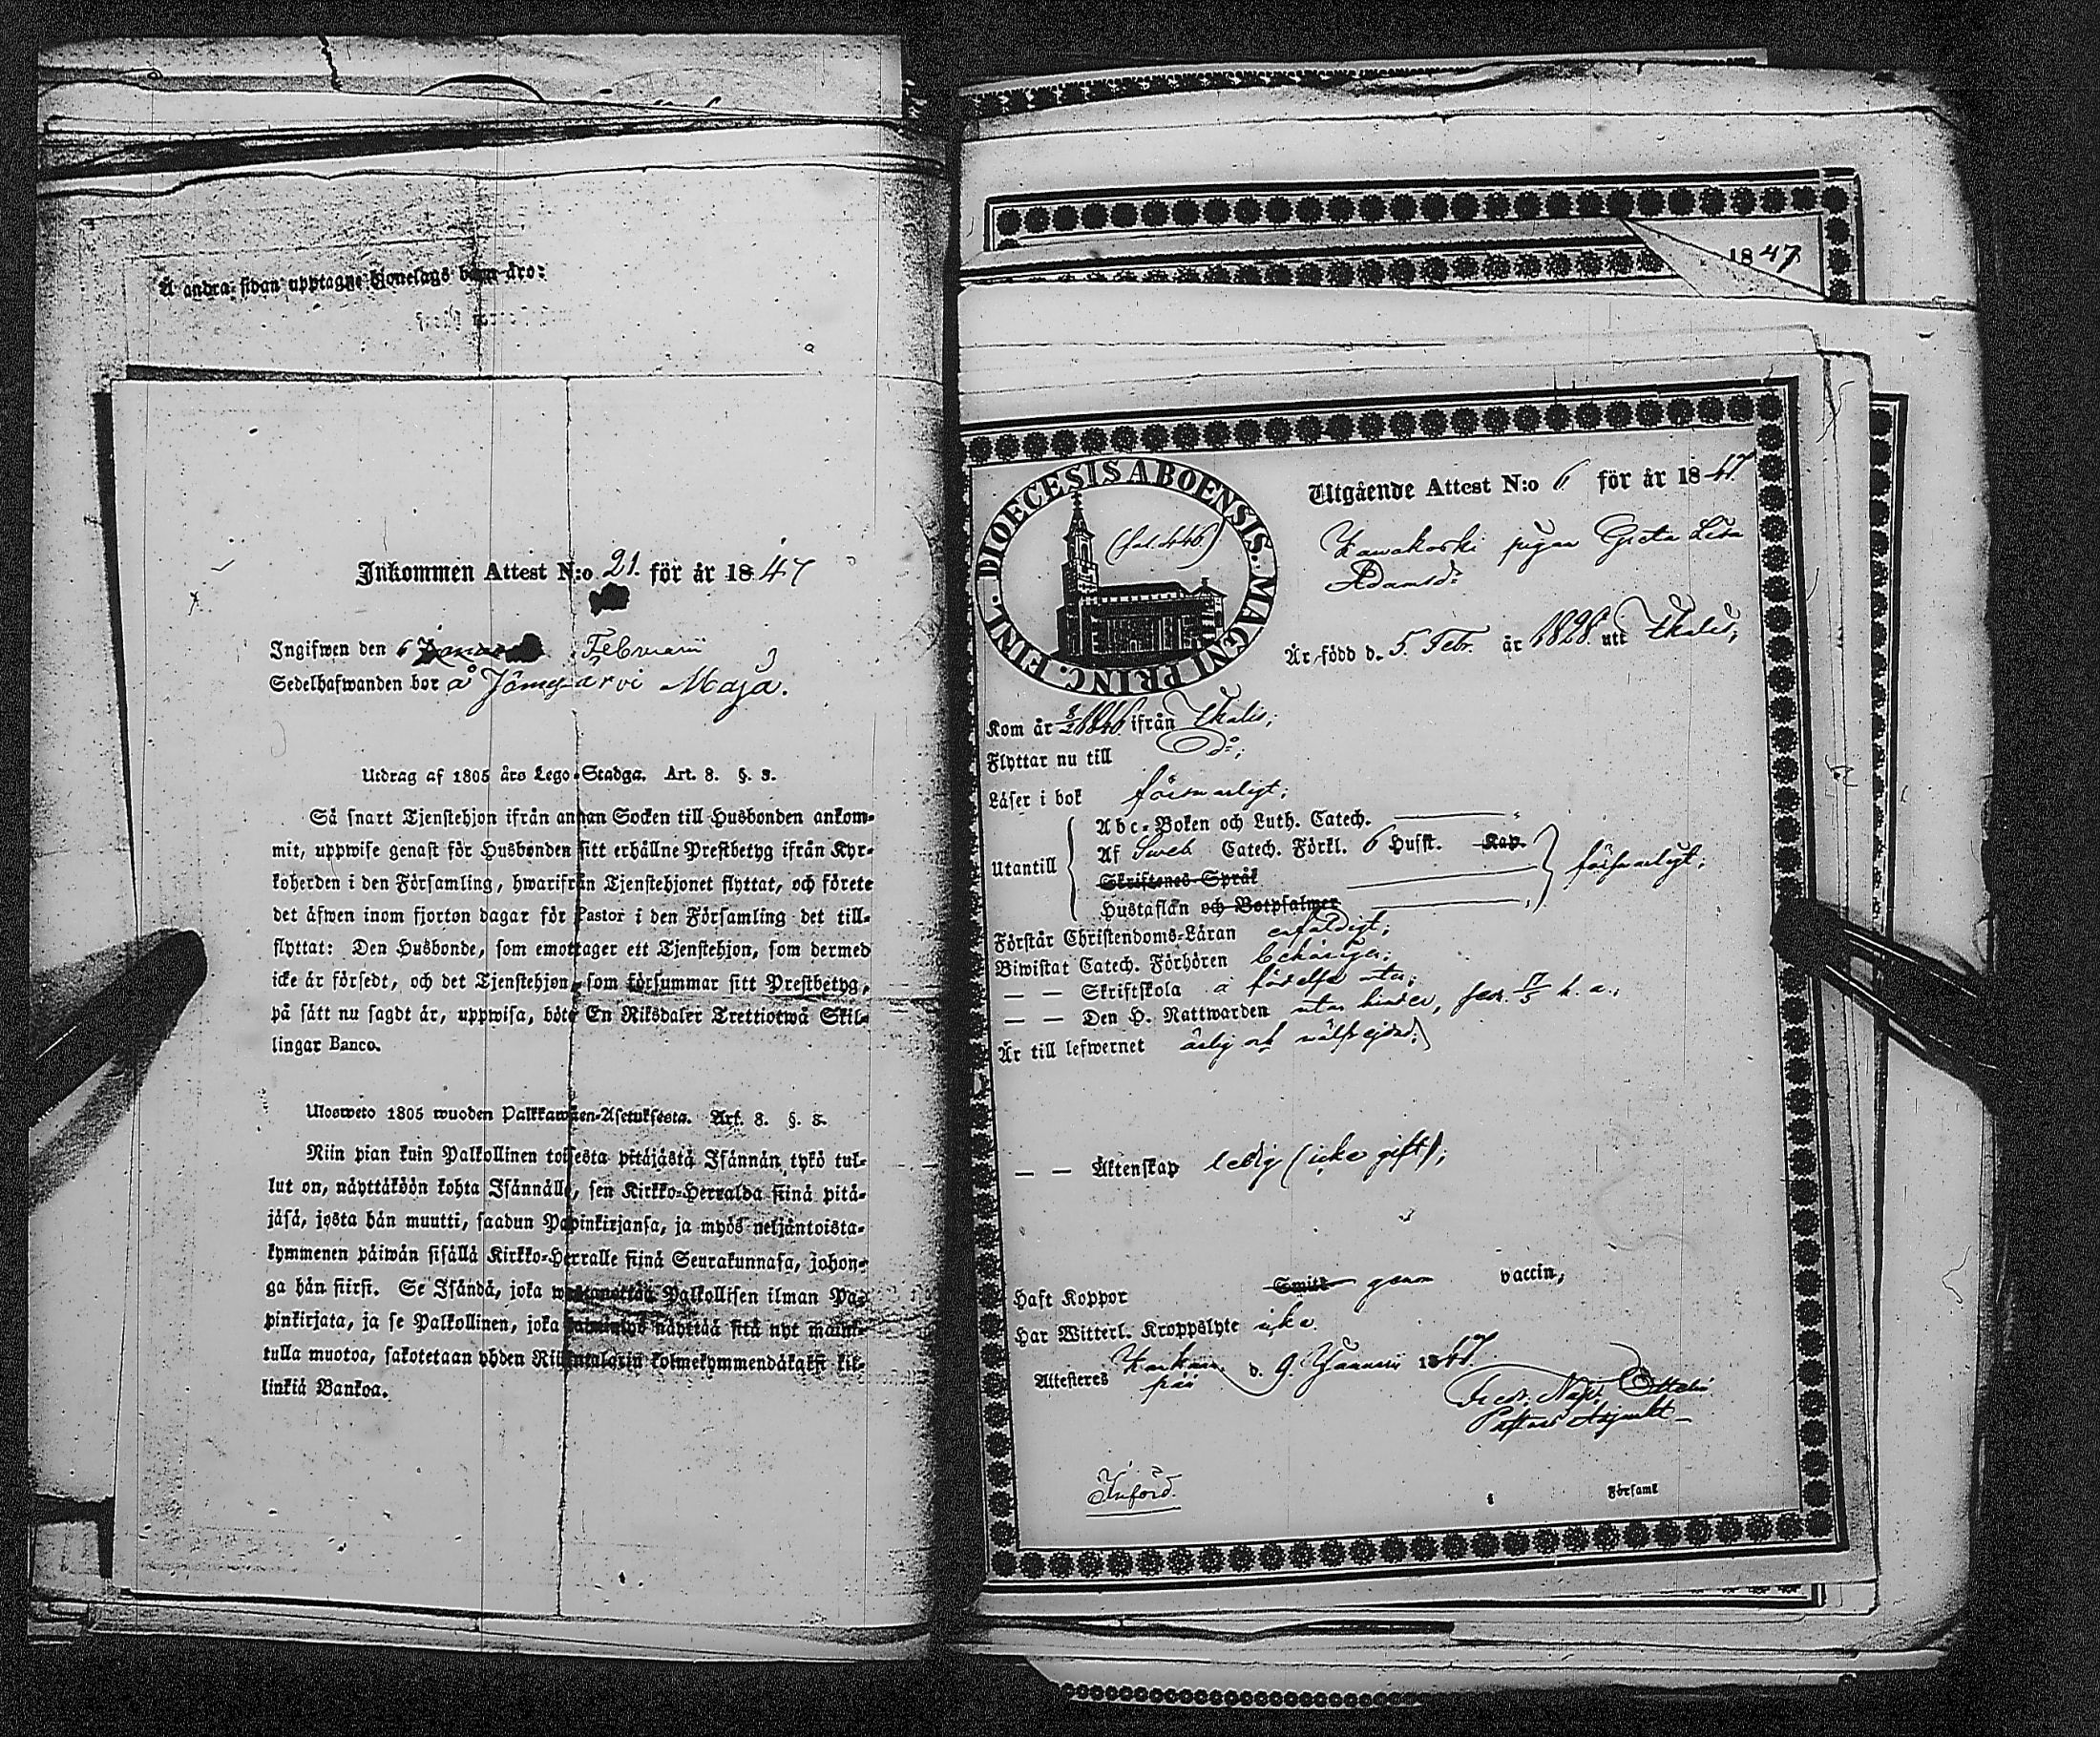 Å andra sidan upptagne Hionelags barn äro:
Inkommen Attest N:o 21. för år 1847
Ingifwen den 6 Februarii
Sedelhafwanden bor å Jämijärvi Maja.
Utdrag af 1805 års Lego-Stadga. Art. 8. §. 3.
Så snart Tjenstehjon ifrån annan Socken till Husbonden ankom-
mit, uppwise genast för Husbonden sitt erhållne Prestbetyg ifrån Kyr-
koherden i den Församling, hwarifrån Tjenstehjonet flyttat, och förete
det äfwen inom fjorton dagar för Pastor i den Församling det till-
flyttat: Den Husbonde, som emottager ett Tjenstehjon, som dermed
icke är försedt, och det Tjenstehjon, som försummar sitt Prestbetyg,
på sätt nu sagdt är, uppwisa, böte En Riksdaler Trettiotwå Skil-
lingar Banco.
Ulosweto 1805 wuoden Palkkawäen-Asetuksesta. Art. 8. §. 3.
Niin pian kuin Palkollinen toisesta pitäjästä Isännän tykö tul-
lut on, näyttäköön kohta Isännälle, sen Kirkko-Herralda siinä pitä-
jäsä, josta hän muutti, saadun Papinkirjansa, ja myös neljäntoista-
kymmenen päiwän sisällä Kirkko-Herralle siinä Seurakunnasa, johon-
ga hän siirsi. Se Isändä, joka wastanottaa Palkollisen ilman Pa-
pinkirjata, ja se Palkollinen, joka laiminlyö näyttää sitä nyt maini-
tulla muotoa, sakotetaan yhden Riikintalarin kolmekymmendäkaksi kil-
linkiä Bankoa.
1847
DIOECESIS ABOENSIS. MAGNI PRINC. FINL.
(fol. 446.)
Utgående Attest N:o 6 för år 1847
Kawakoski pigan Greta Lisa
Adamsdr
Är född d. 5. Febr. år 1828. utt Ikalis;
Kom år 1846 ifrån Ikalis;
Flyttar nu till Do;
Läser i bok försvarligt;
Utantill
Abc-Boken och Luth. Catech.
Af Sweb. Catech. Förkl. 6 Hufst. Kap.
Skriftenes Språk
försvarligt;
Hustaflan och Botpsalmer
Förstår Christendoms-Läran enfaldigt;
Biwistat Catech. Förhören behörigen;
— — Skriftskola å födelse ort;
— — Den H. Nattwarden utan hinder, h. a.;
Är till lefwernet ärlig och wälfrejdad;
— — Äktenskap ledig (icke gift);
Haft Koppor Smitt- genom vaccin;
Har Witterl. Kroppslyte icke.
Attesteres Kankaan-
pää d. 9. Januarii 1847.
Fredr. Nap. Ottelin
Pastors Adjunkt
Införd.
i Församl